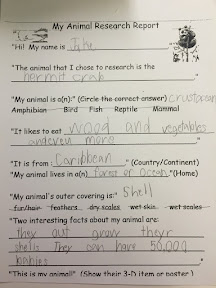 My Animal Research Report
"Hi! My name is Jake
"The animal that I chose to research is the
hermit crab."
"My animal is a(n): (Circle the correct answer) crustacean
Amphibian Bird Fish Reptile Mammal
"It likes to eat wood and vegetables
and even more."
"It is from: Caribbean." (Country/Continent)
"My animal lives in a(n) forest or ocean."(Home)
"My animal's outer covering is:" Shell
fur/hair feathers dry scales wet skin wet scales
"Two interesting facts about my animal are:
they out grow theyr
shells They can have 50,000
babies"
"This is my animal!" (Show their 3-D item or poster)